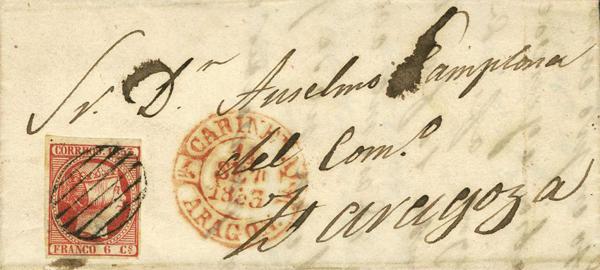 Sr. D.ⁿ Anselmo Pamplona
del Com.º
Zaragoza
CORREOS
FRANCO 6 Cs
CARIÑE
1853
ARAGON